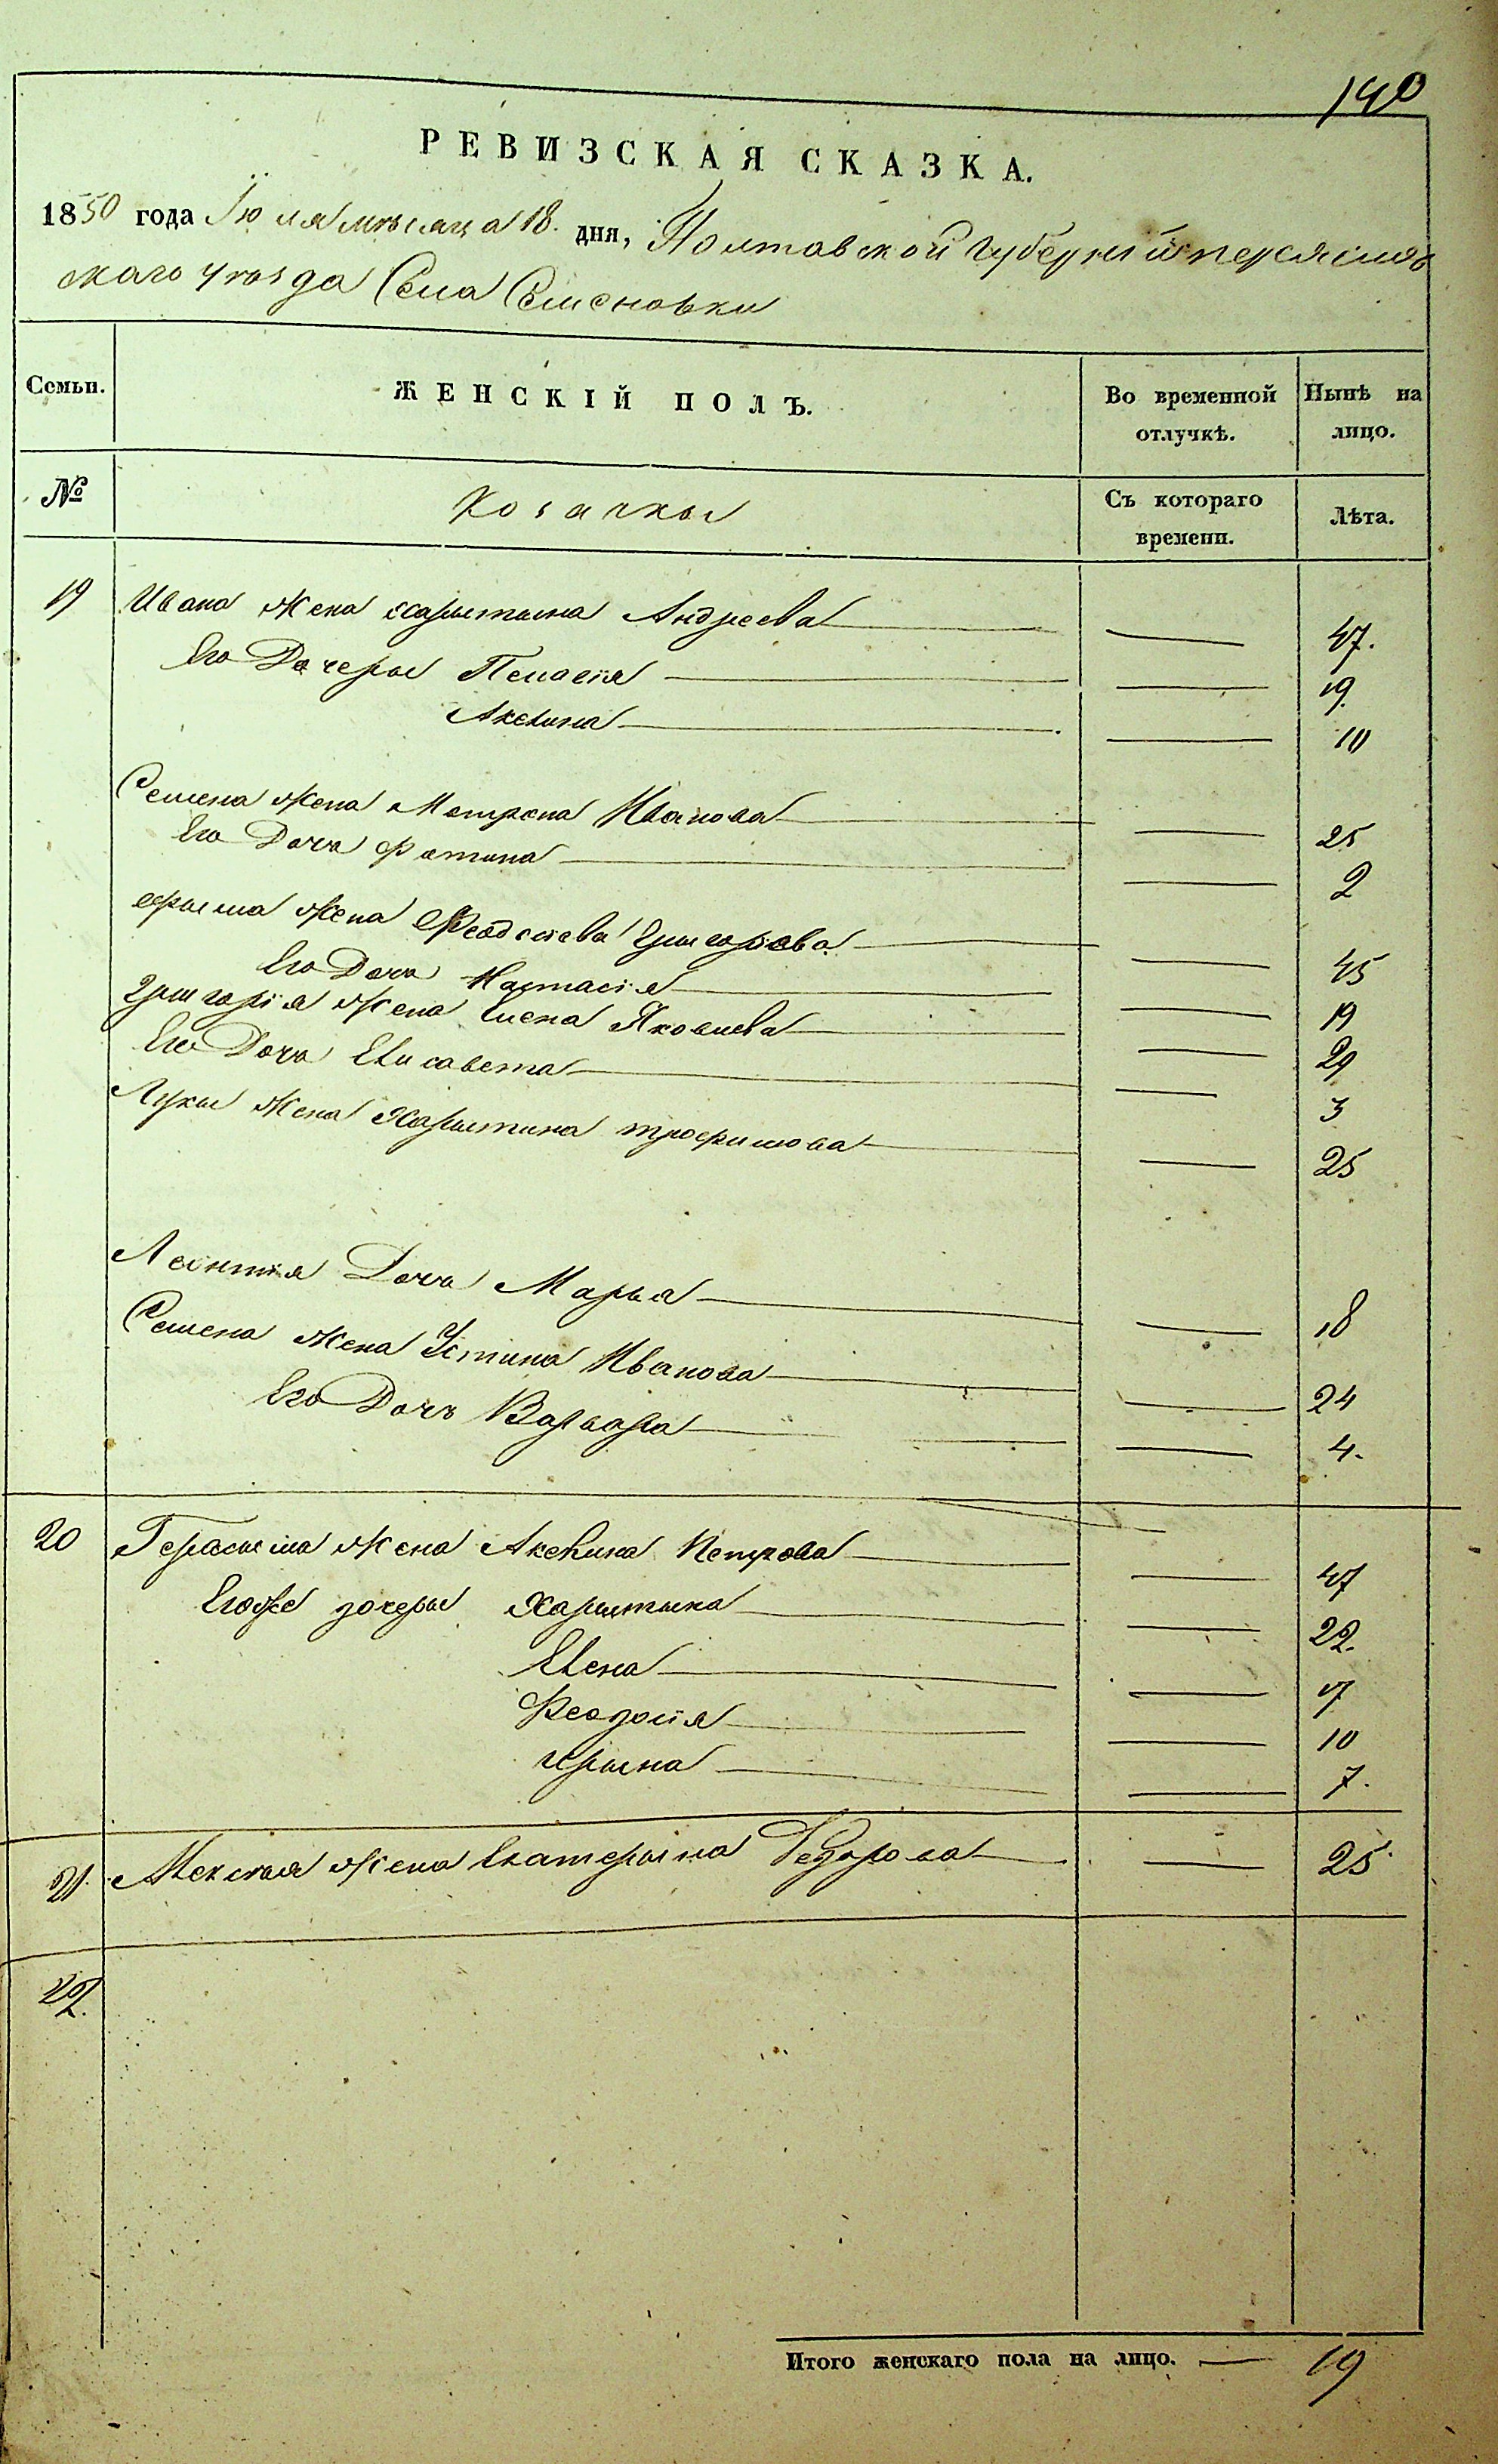 140
РЕВИЗСКАЯ СКАЗКА.
1850 года Іюля мѣсяца 18. дня, Полтавской губерніи переяслов
скаго уѣзда Села Семеновки
Семьи. ЖЕНСКІЙ ПОЛЪ. Во временной отлучкѣ. Нынѣ на лицо.
№ Козачкы Съ котораго времени. Лѣта.
19 Ивана жена харытына Андреева 47.
Его Дочеры Пелагія 19.
Акелина 10
Семена жена Мотрона Иванова 25
Его Дочь Фотина 2
ефыма жена Феодосіева Григоріова 45
Его Дочь Настасія 19
Григорія жена Елена Яковлева 29
Его Дочь Елисавета 3
Лукы жена Харытина трофимова 25
Леонтія Дочь Марья 18
Семена жена Устина Иванова 24
Его Дочъ Варвара 4.
20 Герасыма жена Акелина Петрова 47
Егоже дочеры Харытына 22.
Елена 17
Феодосія 10
ирына 7.
21. Алексѣя жена Екатерына Федорова 25
22.
Итого женскаго пола на лицо. — 19